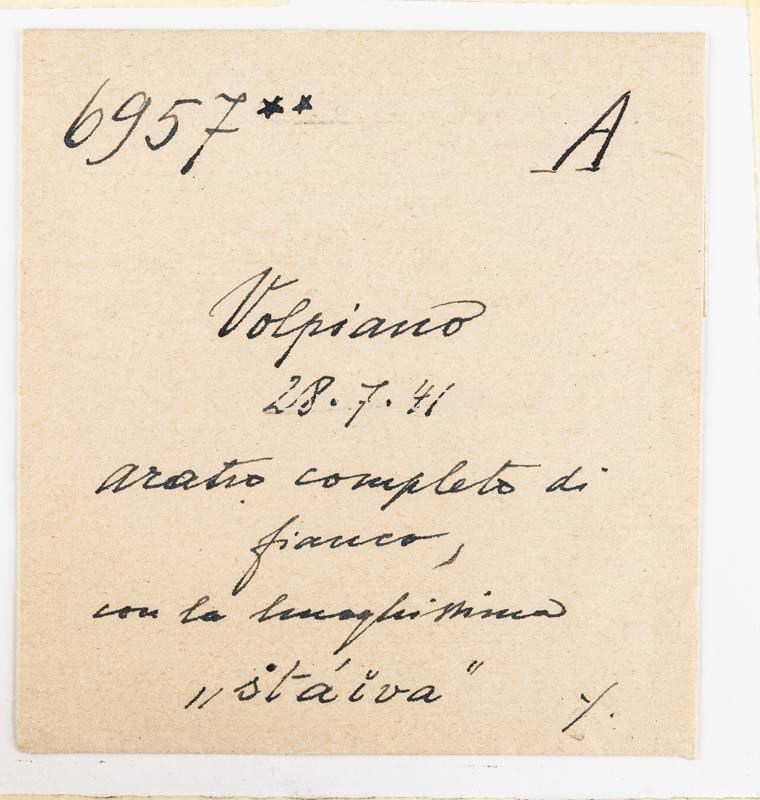 6957** A
Volpiano
28.7.41
aratro completo di
fianco,
con la lunghissima
„stáiva"
./.